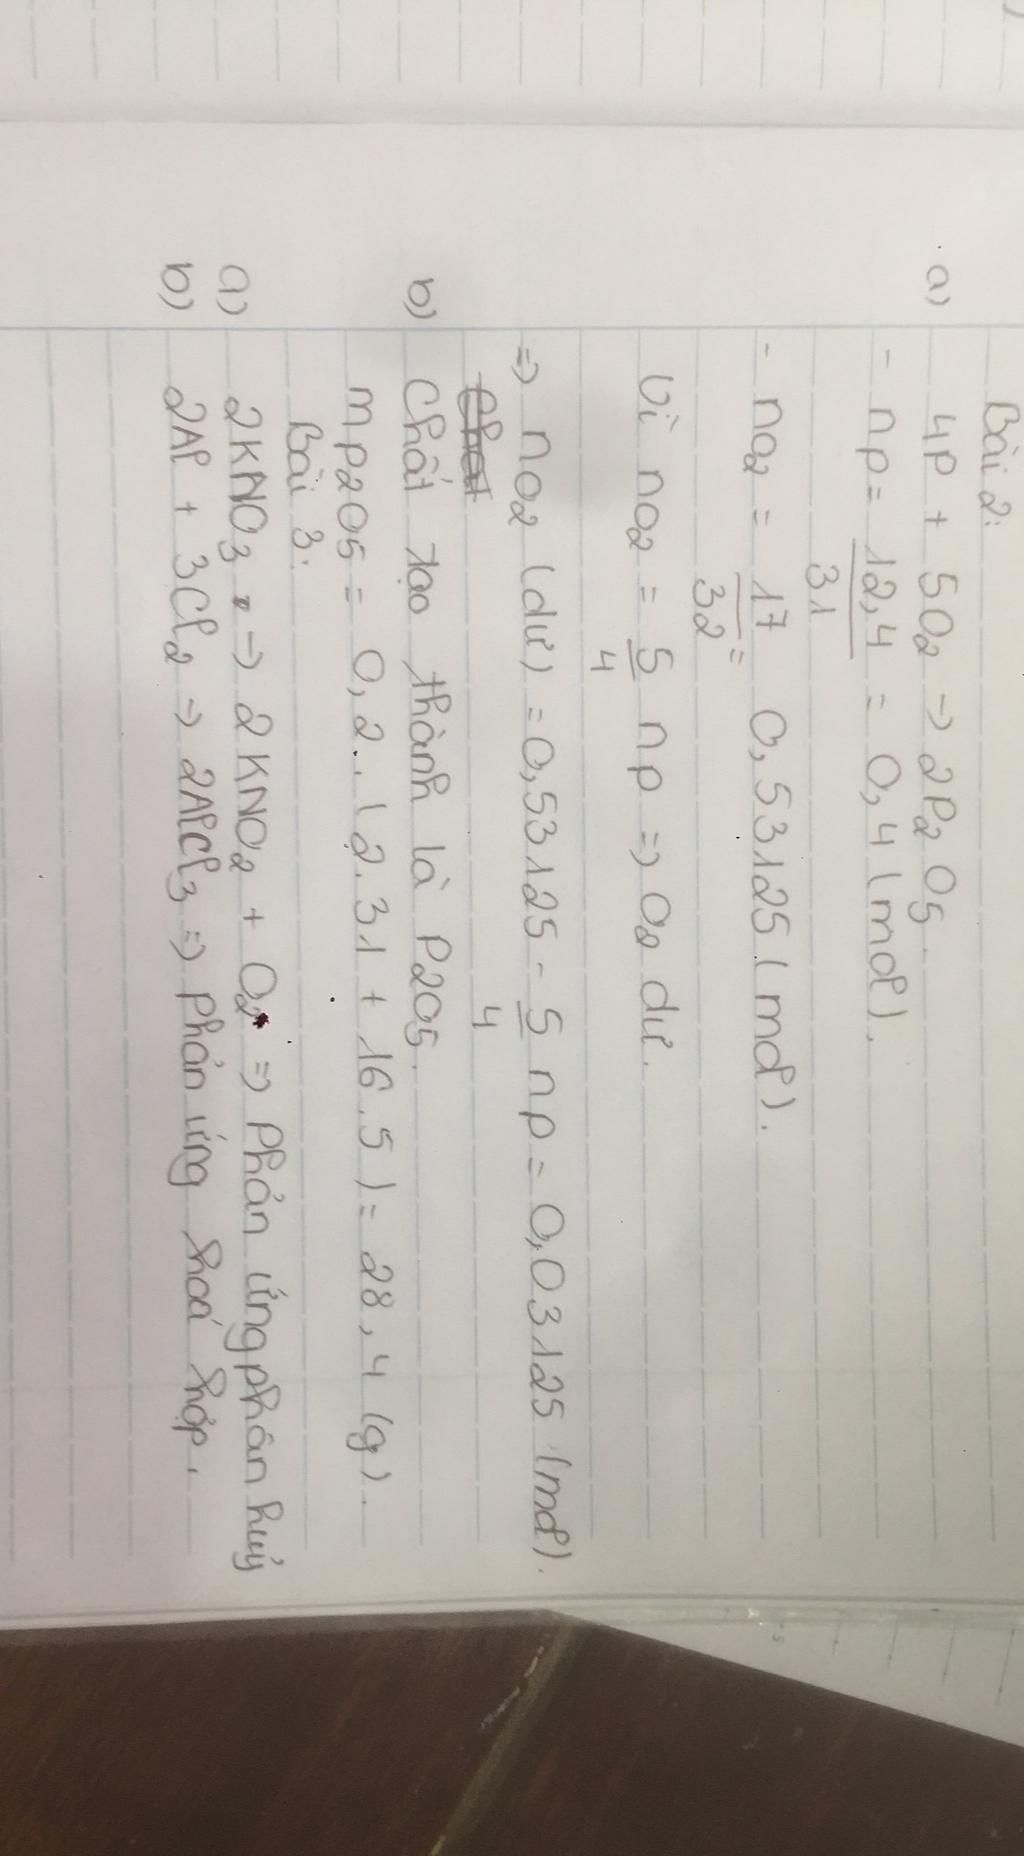 Bài 2:
a) 4P + 5O2 -> 2P2O5.
- np = 12,4 = 0,4 (mol).
31
- no2 = 17 = 0,53125 (mol).
32
Vì no2 = 5 np => O2 dư.
4
=> no2 (dư) = 0,53125 - 5 np = 0,03125 (mol).
4
b) Chất tạo thành là P2O5.
mp2O5 = 0,2.. (2.31 + 16.5) = 28,4 (g).
Bài 3:
a) 2KNO3 -> 2KNO2 + O2 => Phản ứng phân huỷ
b) 2Al + 3Cl2 -> 2AlCl3 => phản ứng hoá hợp.